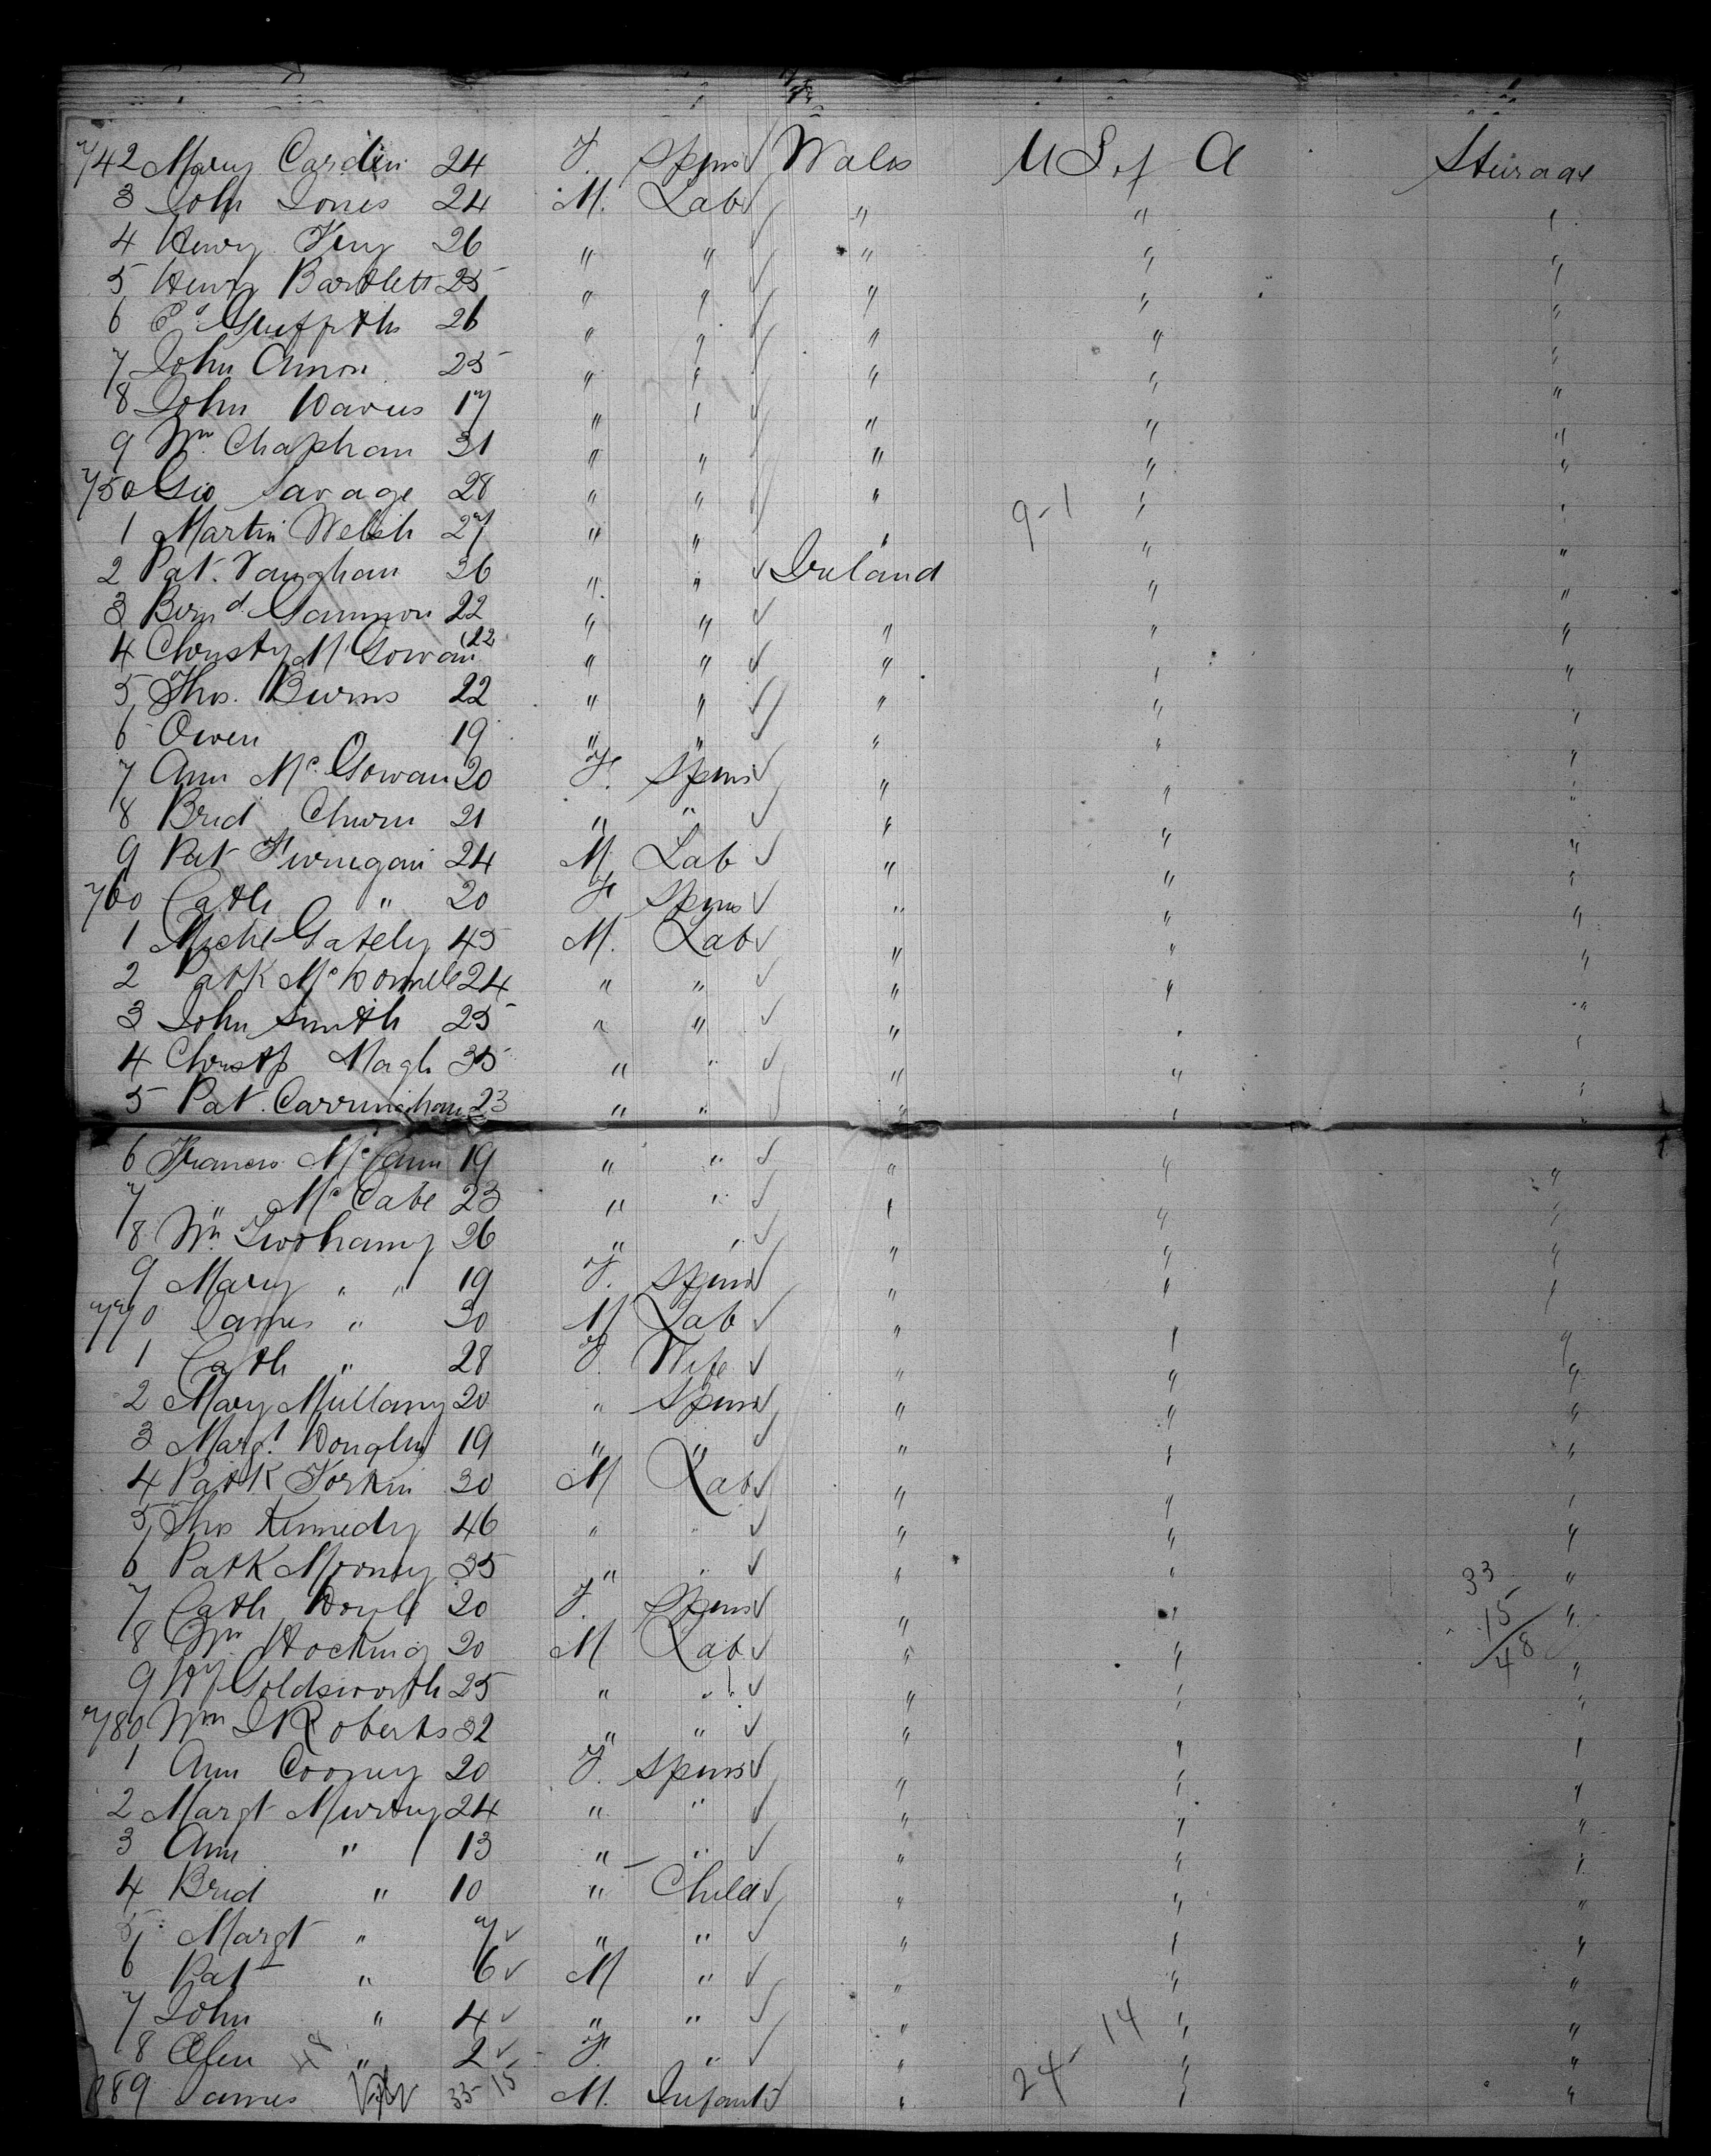 742 Mary Cardin 24 F. Spins Wales U S of A Steerage
3 John Jones 24 M. Lab " " "
4 Henry King 26 " " " " "
5 Henry Bartlett 25 " " " " "
6 Ed Griffiths 26 " " " " "
7 John Amon 25 " " " " "
8 John Davies 17 " " " " "
9 Wm Chapman 31 " " " " "
750 Geo Savage 28 " " " 9-1 " "
1 Martin Welsh 27 " " " " "
2 Pat. Vaughan 26 " " Ireland " "
3 Bernd Gammon 22 " " " " "
4 Christy McGowan 22 " " " " "
5 Thos. Burns 22 " " " " "
6 Owen 19 " " " " "
7 Ann McGowan 20 F. Spins " " "
8 Brid 21 " " " " "
9 Pat Finnegan 24 M. Lab " " "
760 Cath " 20 F Spins " " "
1 Michl Gately 45 M. Lab " " "
2 Patk McDonnell 24 " " " " "
3 John Smith 25 " " " " "
4 Christp 35 " " " " "
5 Pat. 23 " " " " "
6 Francis McCann 19 " " " " "
7 " McCabe 23 " " " " "
8 Wm Twohamy 26 " " " " "
9 Mary " " 19 F. Spins " " "
770 James " 30 M Lab " " "
1 Cath " 28 F. Wife " " "
2 Mary Mullany 20 " Spins " " "
3 Margt 19 " " " " "
4 Patk 30 M Lab " " "
5 Thos Kennedy 46 " " " " "
6 Patk Mooney 35 " " " " 33 "
7 Cath Doyle 20 F. Spins " " 15 "
8 Wm Hocking 20 M Lab " " 48
9 Hy Goldsworth 25 " " " " "
780 Wm J Roberts 32 " " " " "
1 Ann Cooney 20 F. Spins " " "
2 Margt 24 " " " " "
3 Ann " 13 " " " " "
4 Brid " 10 " Child " " "
5 Margt " 7 " " " " "
6 Pat " 6 M " " " "
7 John " 4 " " " 14 " "
8 " 2 F. " " " "
789 James 33 15 M. Infant " 24 " "